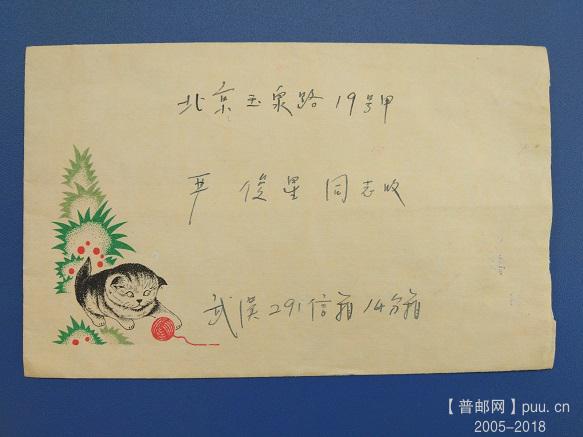 北京玉泉路19号甲
严俊星同志收
武汉291信箱14分箱
【普邮网】puu.cn
2005-2018